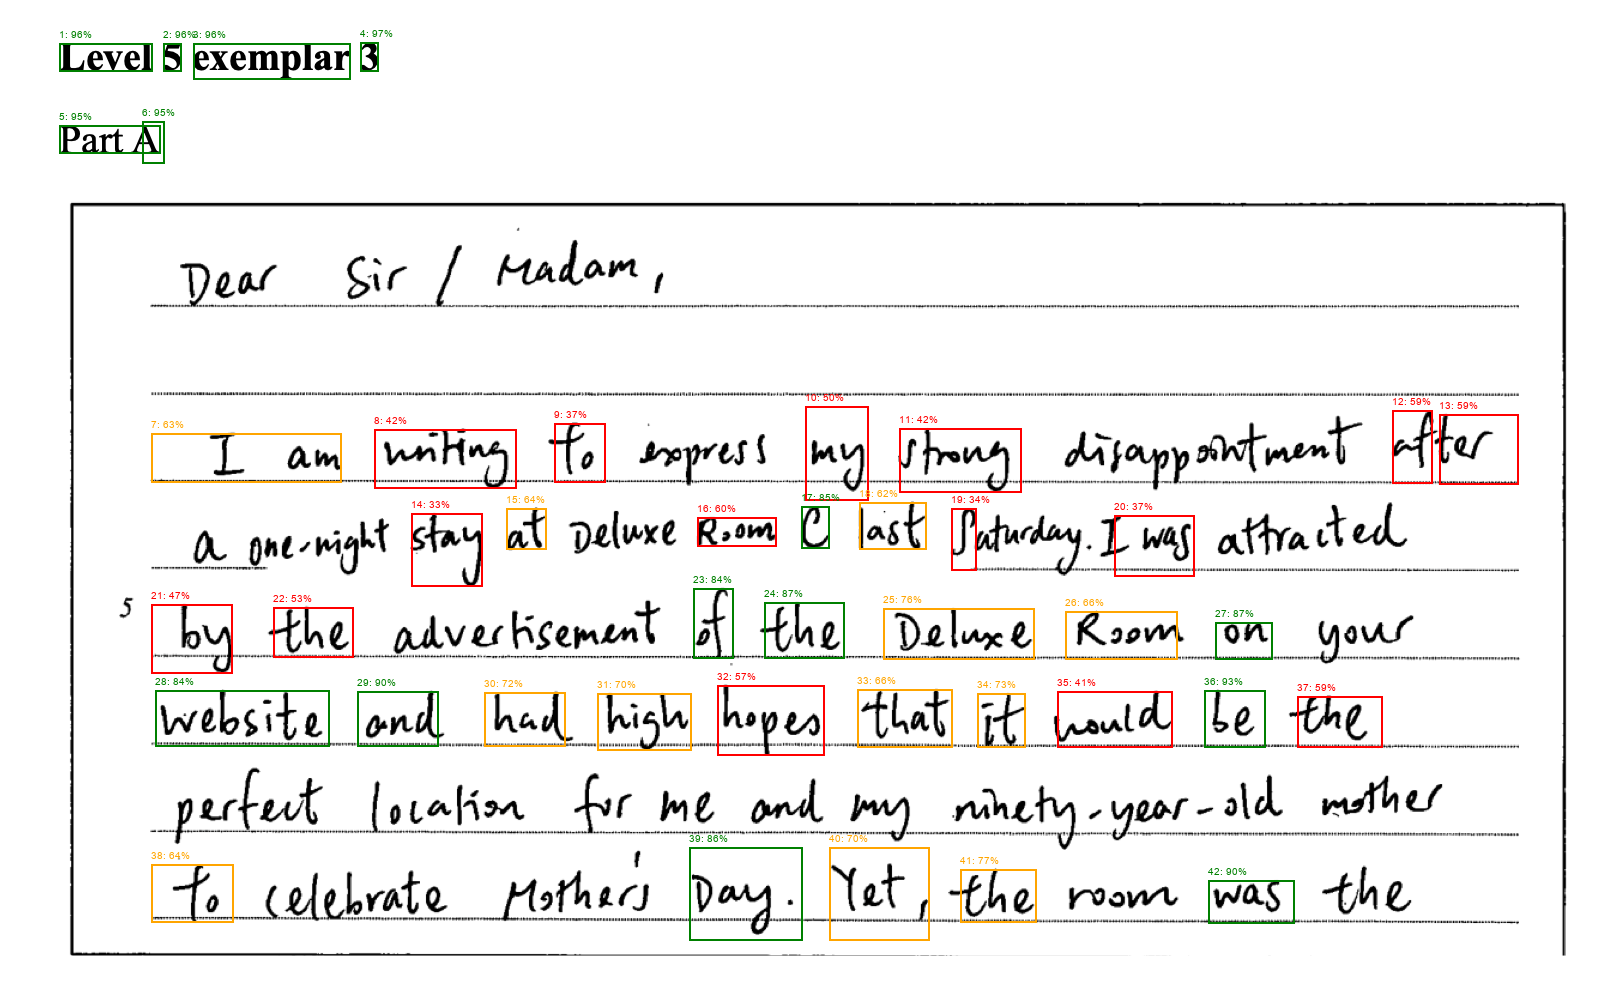 1: 96% 2: 96% 3: 96% 4: 97%
Level 5 exemplar 3
5: 95% 6: 95%
Part A
Dear Sir / Madam,
10: 50% 12: 59% 13: 59%
7: 63% 8: 42% 9: 37% 11: 42%
I am writing to express my strong disappointment after
14: 33% 15: 64% 16: 60% 17: 85% 18: 62% 19: 34% 20: 37%
a one-night stay at Deluxe Room C last Saturday. I was attracted
21: 47% 22: 53% 23: 84% 24: 87% 25: 76% 26: 66% 27: 87%
5 by the advertisement of the Deluxe Room on your
28: 84% 29: 90% 30: 72% 31: 70% 32: 57% 33: 66% 34: 73% 35: 41% 36: 93% 37: 59%
website and had high hopes that it would be the
perfect location for me and my ninety-year-old mother
38: 64% 39: 86% 40: 70% 41: 77% 42: 90%
to celebrate Mother's Day. Yet, the room was the